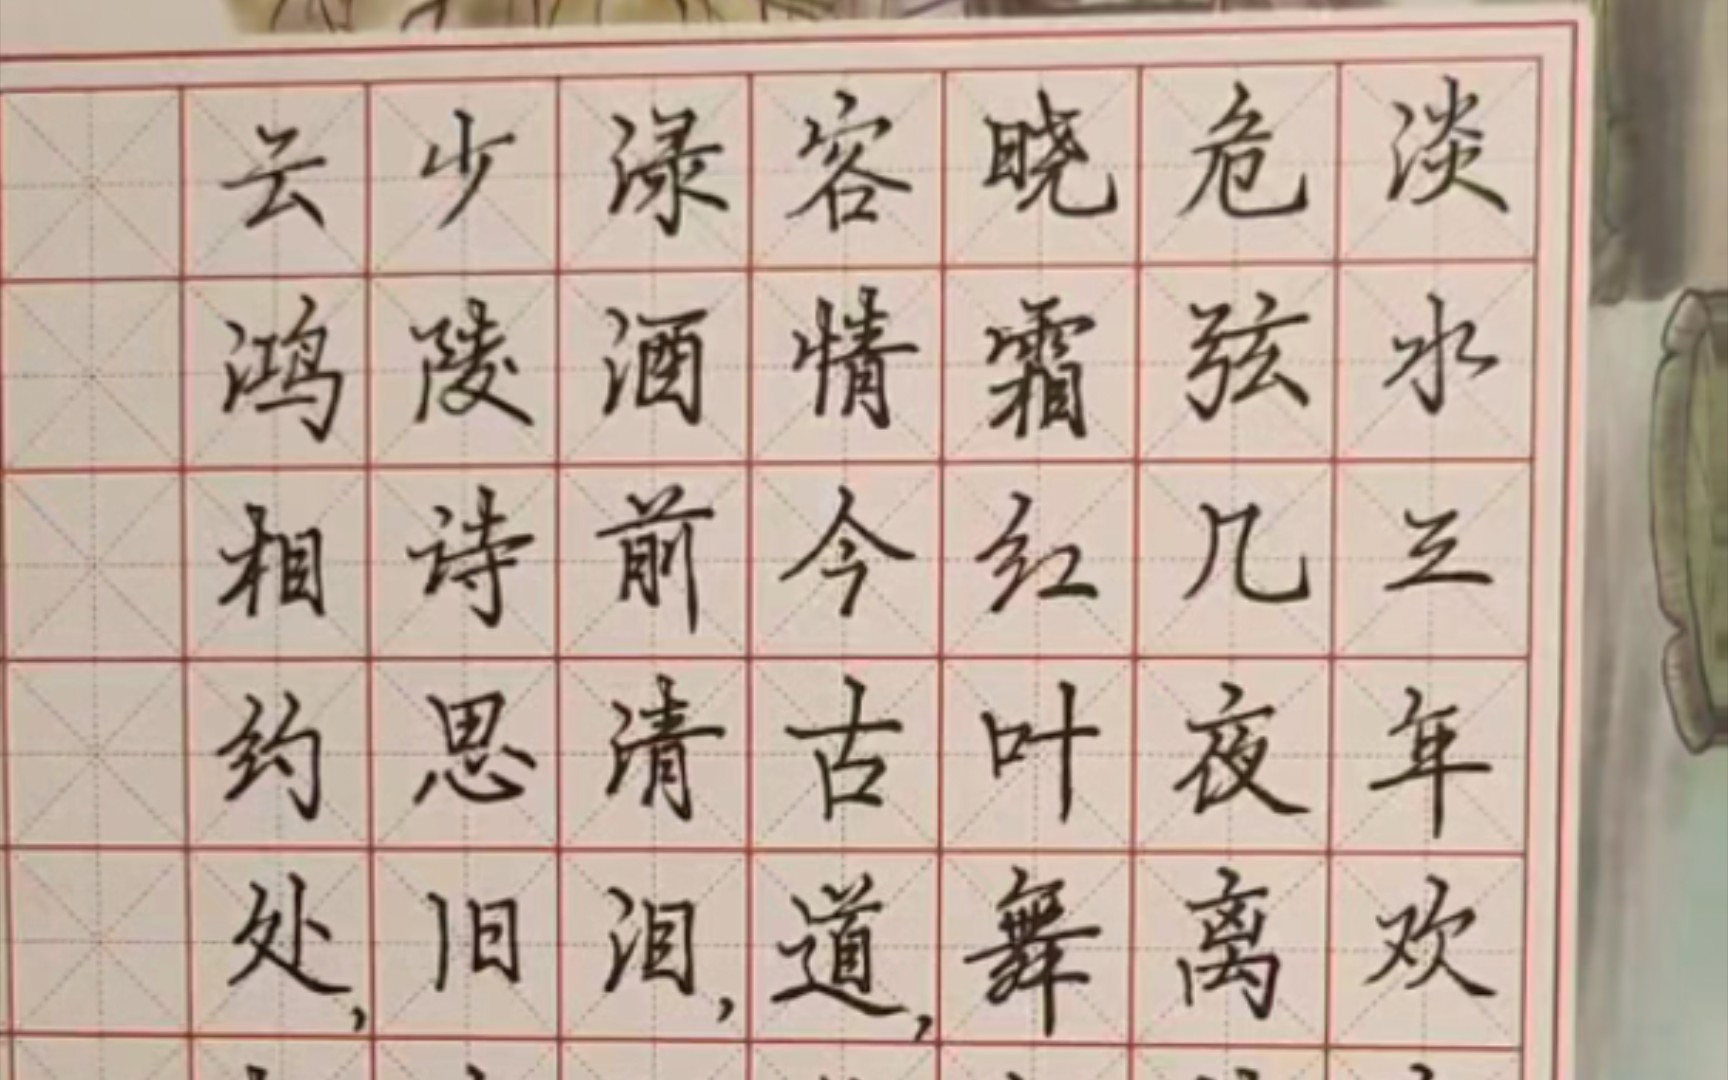 淡水三年欢
危弦几夜离
晓霜红叶舞
容情今古道，
渌酒前清泪，
少陵诗思旧
云鸿相约处，